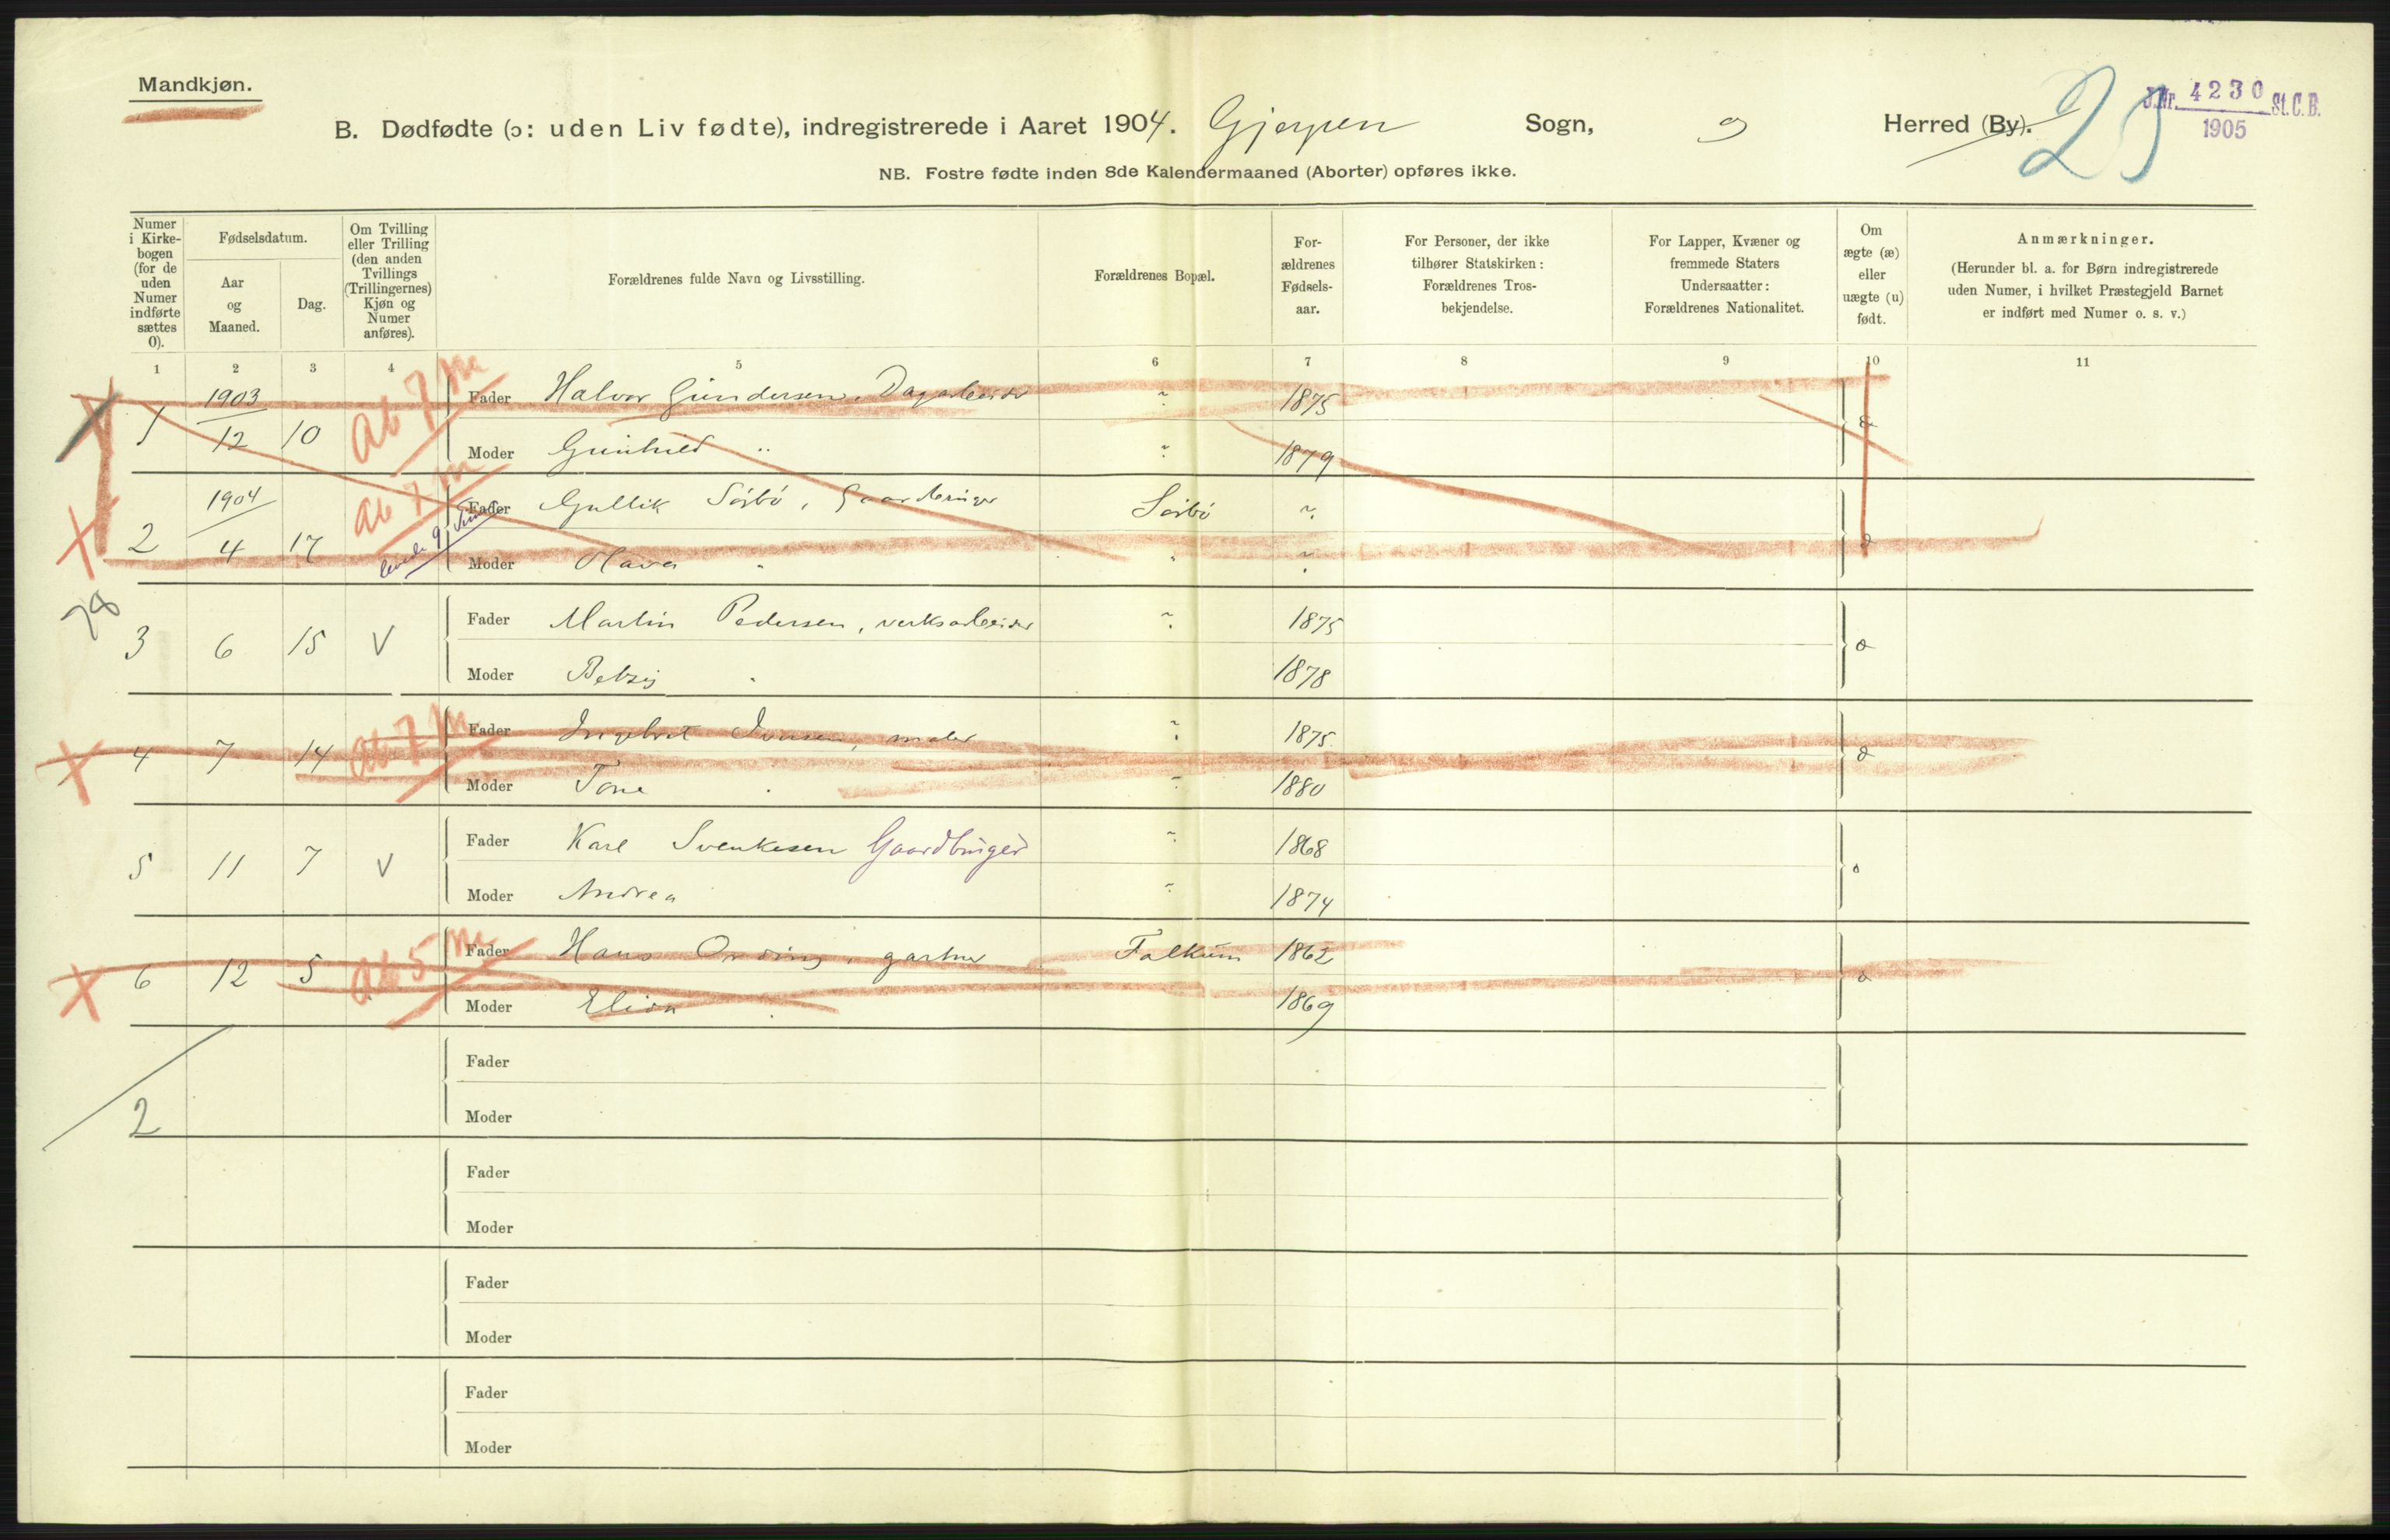 Mandkjøn.
J.Nr. 4230 St.C.B.
1905
B. Dødfødte (ɔ: uden Liv fødte), indregistrerede i Aaret 1904. Gjerpen Sogn, Herred (By).
NB. Fostre fødte inden 8de Kalendermaaned (Aborter) opføres ikke.
Numer i Kirkebogen (for de uden Numer indførte sættes 0).
Fødselsdatum.
Aar og Maaned.
Dag.
Om Tvilling eller Trilling (den anden Tvillings (Trillingernes) Kjøn og Numer anføres).
Forældrenes fulde Navn og Livsstilling.
Forældrenes Bopæl.
Forældrenes Fødselsaar.
For Personer, der ikke tilhører Statskirken: Forældrenes Trosbekjendelse.
For Lapper, Kvæner og fremmede Staters Undersaatter: Forældrenes Nationalitet.
Om ægte (æ) eller uægte (u) født.
Anmærkninger.
(Herunder bl. a. for Børn indregistrerede uden Numer, i hvilket Præstegjeld Barnet er indført med Numer o. s. v.)
1 2 3 4 5 6 7 8 9 10 11
1903
1 12 10 Ab 7 m Fader Halvor Gundersen, Dagarbeider " 1875
Moder Gunhild " " 1879
1904
2 4 17 Ab 7 m Fader Gullik Sörbö, Gaardbruger Sörbö "
Moder Olava " " "
78
3 6 15 V Fader Martin Pedersen, verksarbeider " 1875
Moder Betsy " 1878
4 7 14 Ab 7 m Fader Ingebret Iversen, maler " 1875
Moder Tone " " 1880
5 11 7 V Fader Karl Svenkesen Gaardbruger " 1868
Moder Andrea " 1874
6 12 5 Ab 5 m Fader Hans Ording, gartner Falkum 1862
Moder Elisa " 1869
Fader
2 Moder
Fader
Moder
Fader
Moder
Fader
Moder